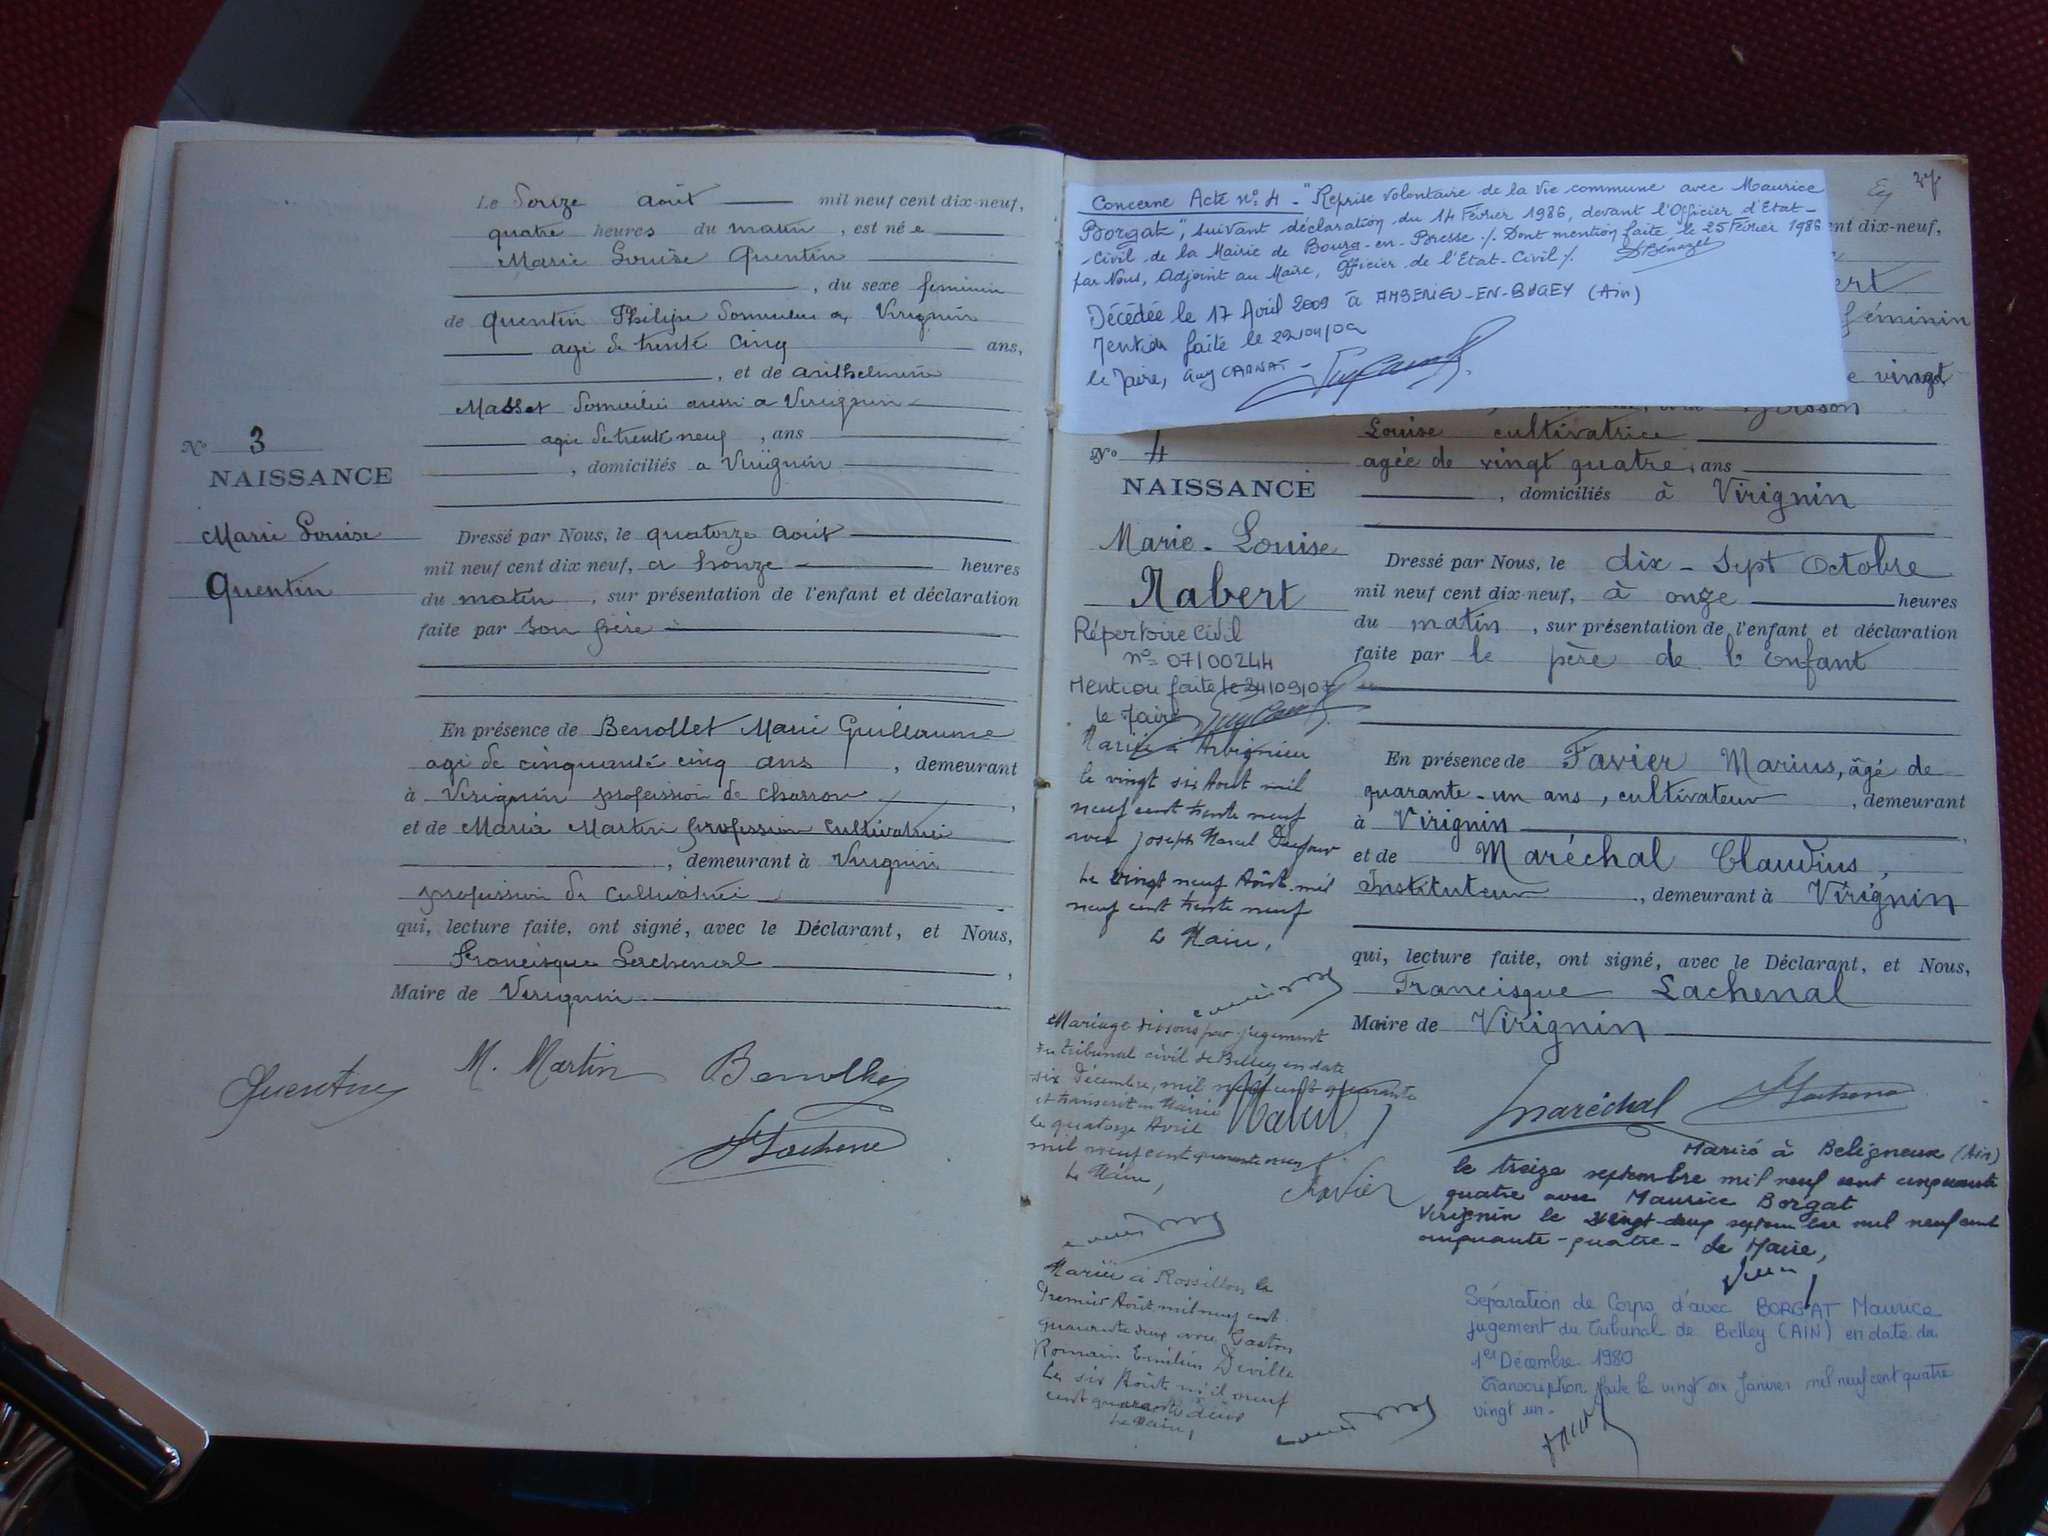 Le Douze août mil neuf cent dix-neuf,
quatre heures du matin, est née
Marie Louise Quentin
, du sexe feminin
de Quentin Philipe Domicilié a Virignin
agé de trente cinq ans,
, et de Anthelmine
Masset Domicilié aussi a Virignin
agée de trente neuf, ans
, domiciliés a Virignin
No 3
NAISSANCE
Marie Louise
Quentin
Dressé par Nous, le quatorze Août
mil neuf cent dix neuf, a honze heures
du matin, sur présentation de l'enfant et déclaration
faite par son frère
En présence de Benollet Marie Guillaume
agé de cinquante cinq ans, demeurant
à Virignin profession de charron,
et de Maria Martin profession cultivatrice
, demeurant à Virignin
profession de cultivatrice
qui, lecture faite, ont signé, avec le Déclarant, et Nous,
Francisque Lachenal,
Maire de Virignin
Quentin M. Martin Benollet
Lachenal
27
Concerne Acte n° 4 - "Reprise volontaire de la vie commune avec Maurice
Borgat", suivant déclaration du 14 Février 1986, devant l'Officier d'Etat-
-Civil de la Mairie de Bourg-en-Bresse ./. Dont mention faite le 25 Février 1986
par Nous, Adjoint au Maire, Officier de l'Etat-Civil ./. DBénazet
Décédée le 17 Avril 2009 à AMBERIEU-EN-BUGEY (Ain)
Mention faite le 22/04/09
le Maire, Guy CARNAT -
ent dix-neuf,
ert
féminin
e vingt
Louise cultivatrice
agée de vingt quatre, ans
, domiciliés à Virignin
No 4
NAISSANCE
Marie-Louise
Nabert
Dressé par Nous, le dix-Sept Octobre
mil neuf cent dix-neuf, à onze heures
du matin, sur présentation de l'enfant et déclaration
faite par le père de l'enfant
En présence de Favier Marius, âgé de
quarante-un ans, cultivateur, demeurant
à Virignin,
et de Maréchal Claudius,
Instituteur, demeurant à Virignin
qui, lecture faite, ont signé, avec le Déclarant, et Nous,
Francisque Lachenal
Maire de Virignin
Répertoire Civil
n°= 07/00244
Mention faite le 24/09/07
le Maire
Mariée à Arbignieu
le vingt six Août mil
neuf cent trente neuf
avec Joseph Marcel Dufour
Le vingt neuf Août mil
neuf cent trente neuf
Le Maire,
Mariage dissous par jugement
du tribunal civil de Belley en date
six Décembre, mil neuf cent quarante
et transcrit en Mairie
le quatorze Avril
mil neuf cent quarante un
Le Maire,
Nabert
Favier
Maréchal Lachenal
Mariée à Rossillon le
Premier Août mil neuf cent
quarante deux avec Gaston
Romain Emilien Deville
Le six Août mil neuf
cent quarante deux
Le Maire,
Mariée à Beligneux (Ain)
le treize septembre mil neuf cent cinquante
quatre avec Maurice Borgat
Virignin le vingt-deux septembre mil neuf cent
cinquante-quatre - Le Maire,
Séparation de Corps d'avec BORGAT Maurice
jugement du Tribunal de Belley (AIN) en date du
1er Décembre 1980
Transcription faite le vingt six Janvier mil neuf cent quatre
vingt un.